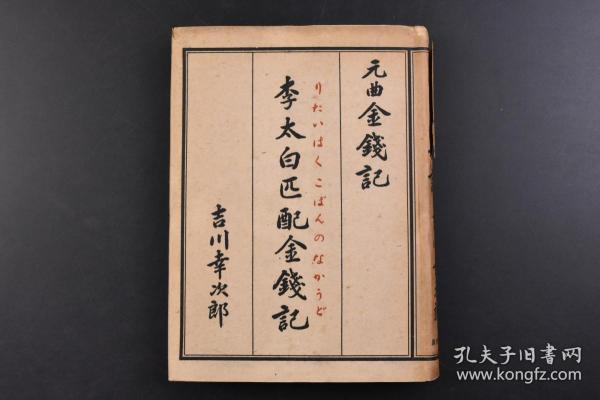 元曲金錢記
りたいはくこばんのなかうど
李太白匹配金錢記
吉川幸次郎
孔夫子旧书网
www.kongfz.com